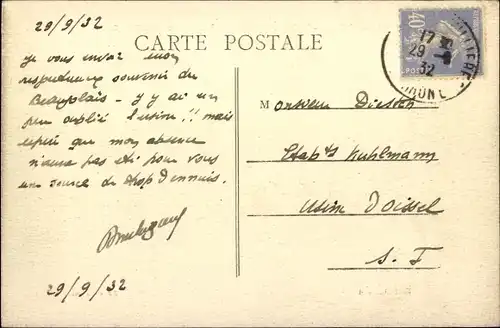 29/9/32
CARTE POSTALE
Je vous envoi mon
respectueux souvenir du
Beaujolais - J'y ai un
peu oublié l'usine!! mais
espère que mon absence
n'aura pas été pour vous
une source de trop d'ennuis.
29/9/32
40c
POSTES
17
29 - 9
32
RHONE
Monsieur
Etabts Kuhlmann
Usine d'Oissel
S. I